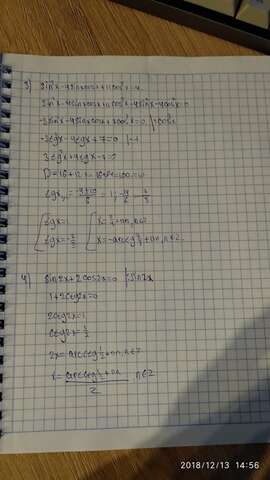 3) sin²x-4sinxcosx+11cos²x=4
sin²x-4sinxcosx+11cos²x-4sin²x-4cos²x=0
-3sin²x-4sinxcosx+7cos²x=0 |:cos²x
-3tg²x-4tgx+7=0 |·-1
3tg²x+4tgx-7=0
D=16+12·7=16+84=100=10
tgx₁,₂=(-4±10)/6=1;-14/6 7/3
tgx=1 x=π/4+πn,n∈Z
tgx=-7/3 x=-arctg 7/3+πn,n∈Z
4) sin2x+2cos2x=0 |:sin2x
1+2ctg2x=0
2ctg2x=1
ctg2x=1/2
2x=arcctg 1/2+πn,n∈Z
x=(arcctg 1/2+πn)/2 n∈Z
2018/12/13 14:56